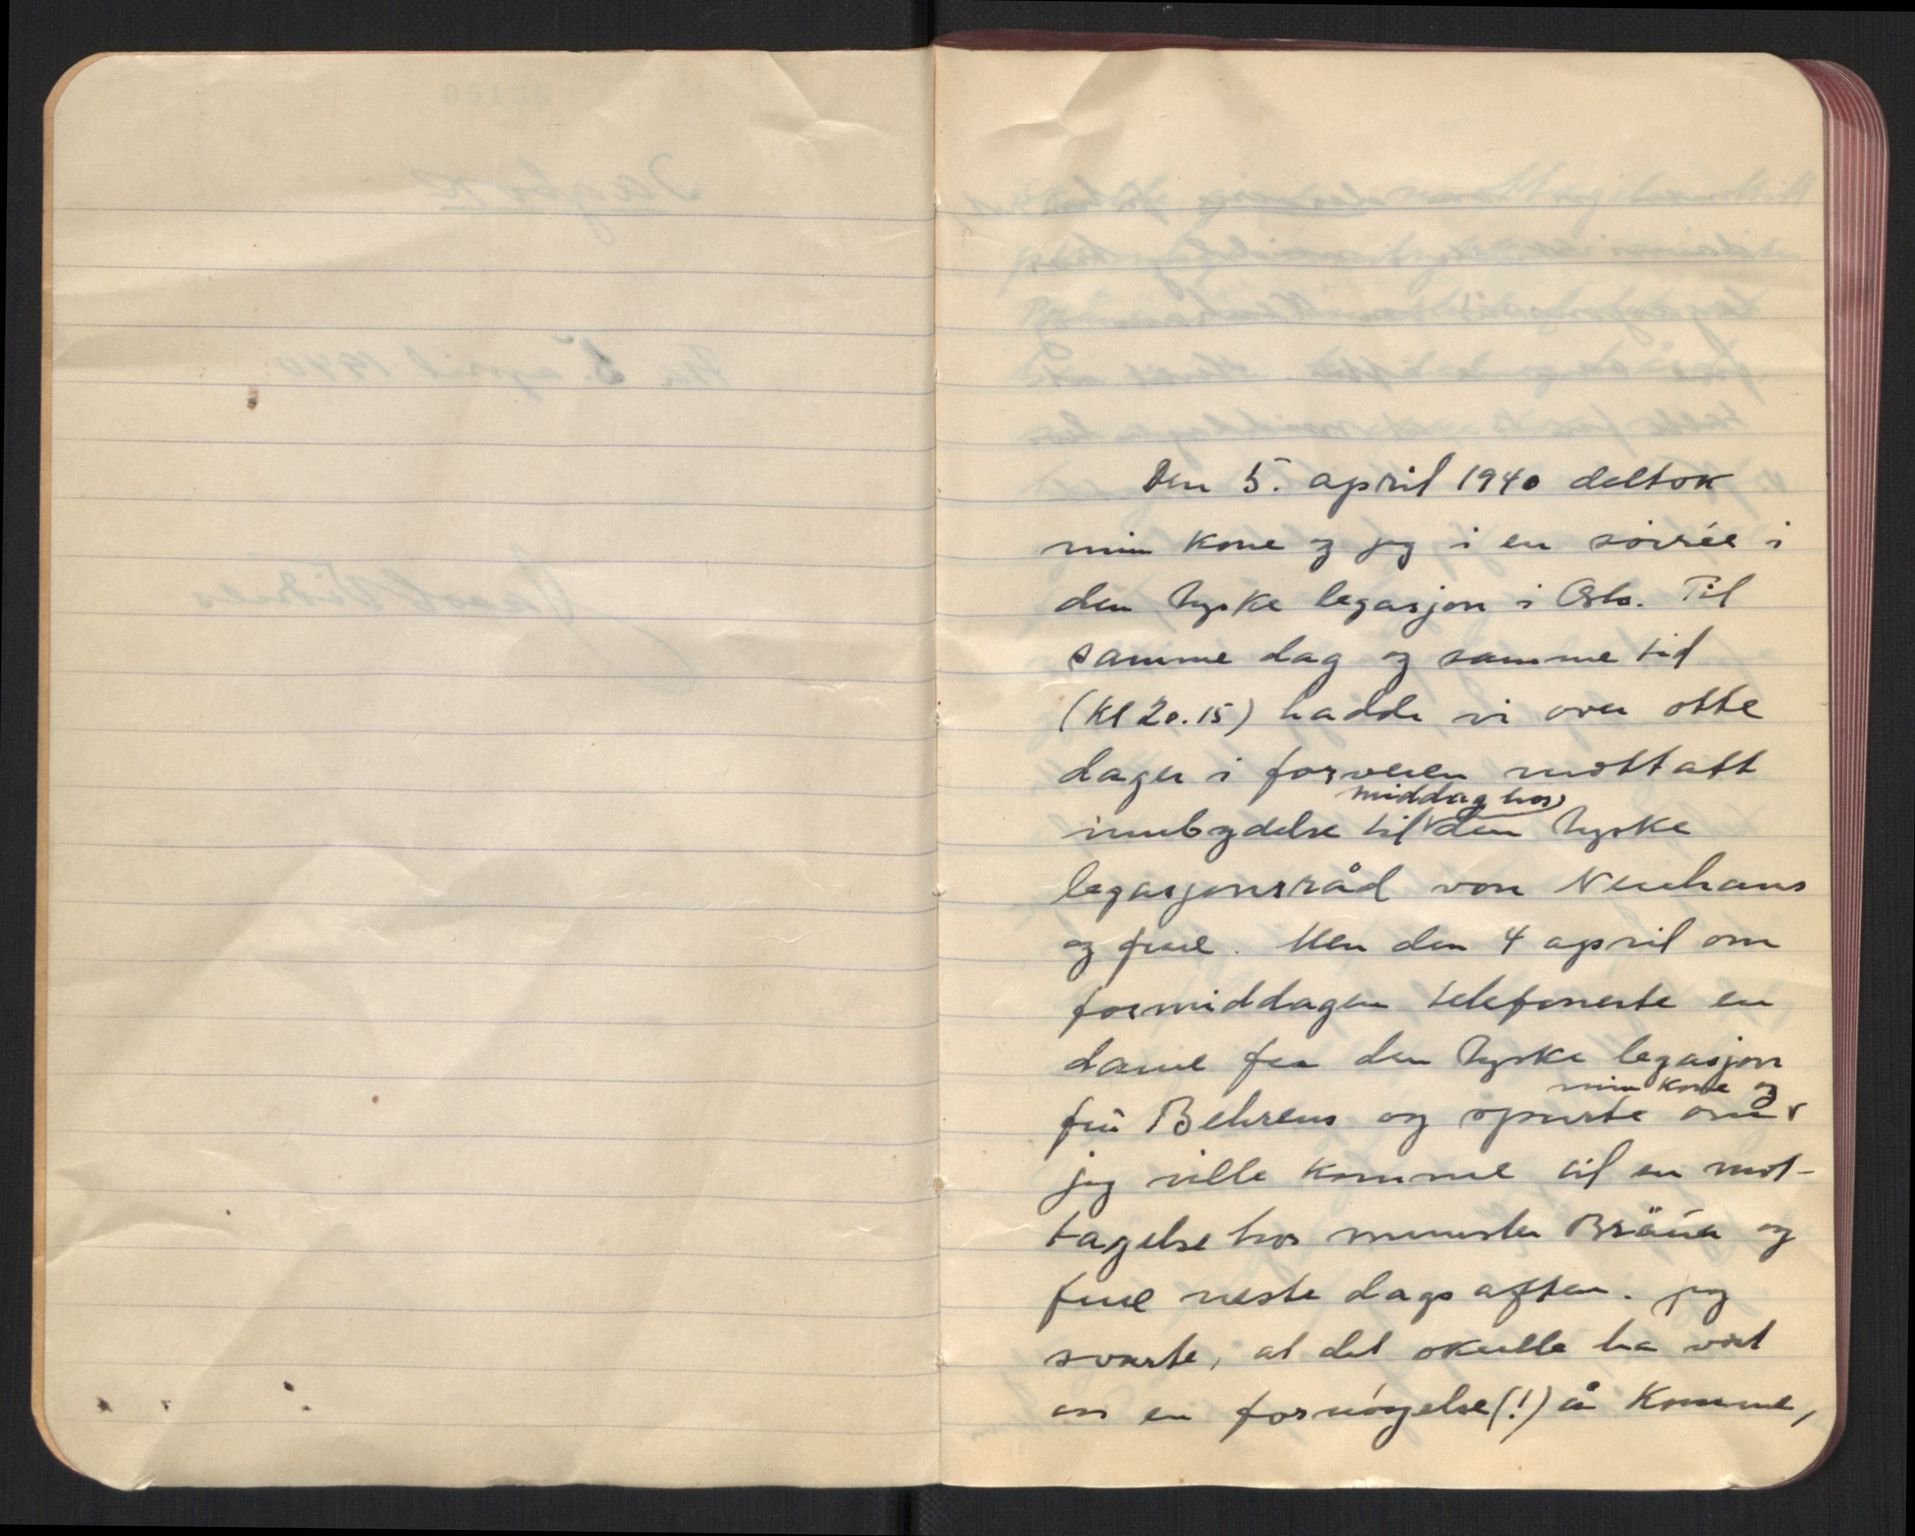 Den 5. april 1940 deltok
min kone og jeg i en soirée i
den tyske legasjon i Oslo. Til
samme dag og samme tid
(kl 20.15) hadde vi over otte
dager i forveien mottatt
middag hos
innbydelse til den tyske
legasjonsråd von Neuhaus
og frue. Men den 4 april om
formiddagen telefonerte en
dame fra den tyske legasjon
min kone og
frü Behrens og spurte om
jeg ville komme til en mot-
tagelse hos minister Bräuer og
frue neste dags aften. Jeg
svarte, at det skulle ha vært
oss en fornöyelse(!) å komme,